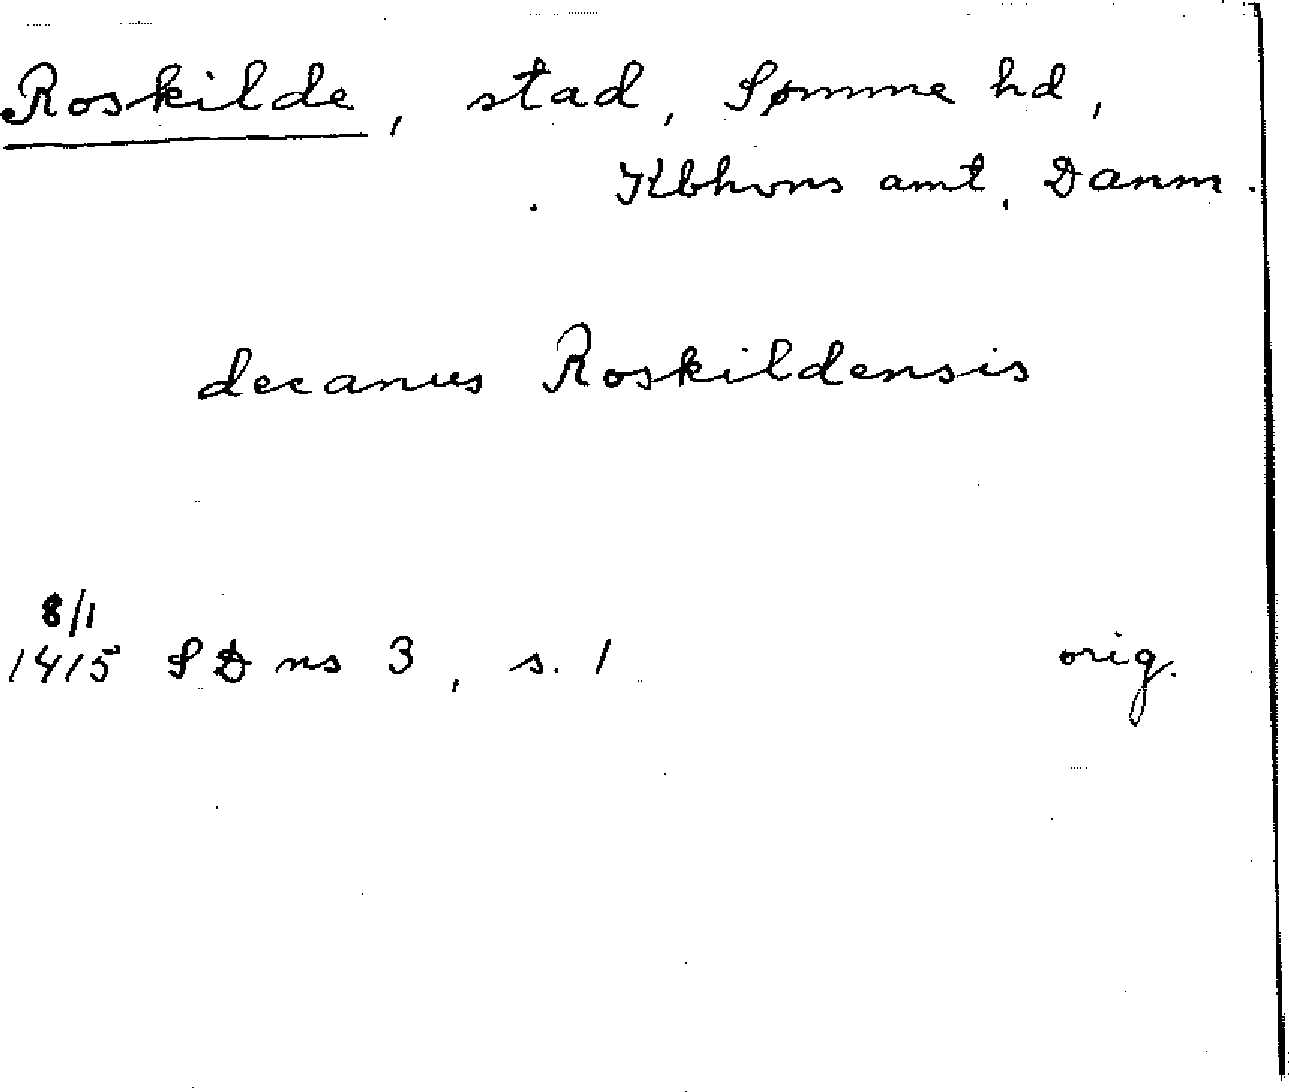 Roskilde, stad, Sømme hd,
Kbhvns amt, Danm.
decanus Roskildensis
8/1
1415 SD ns 3, s. 1 orig.